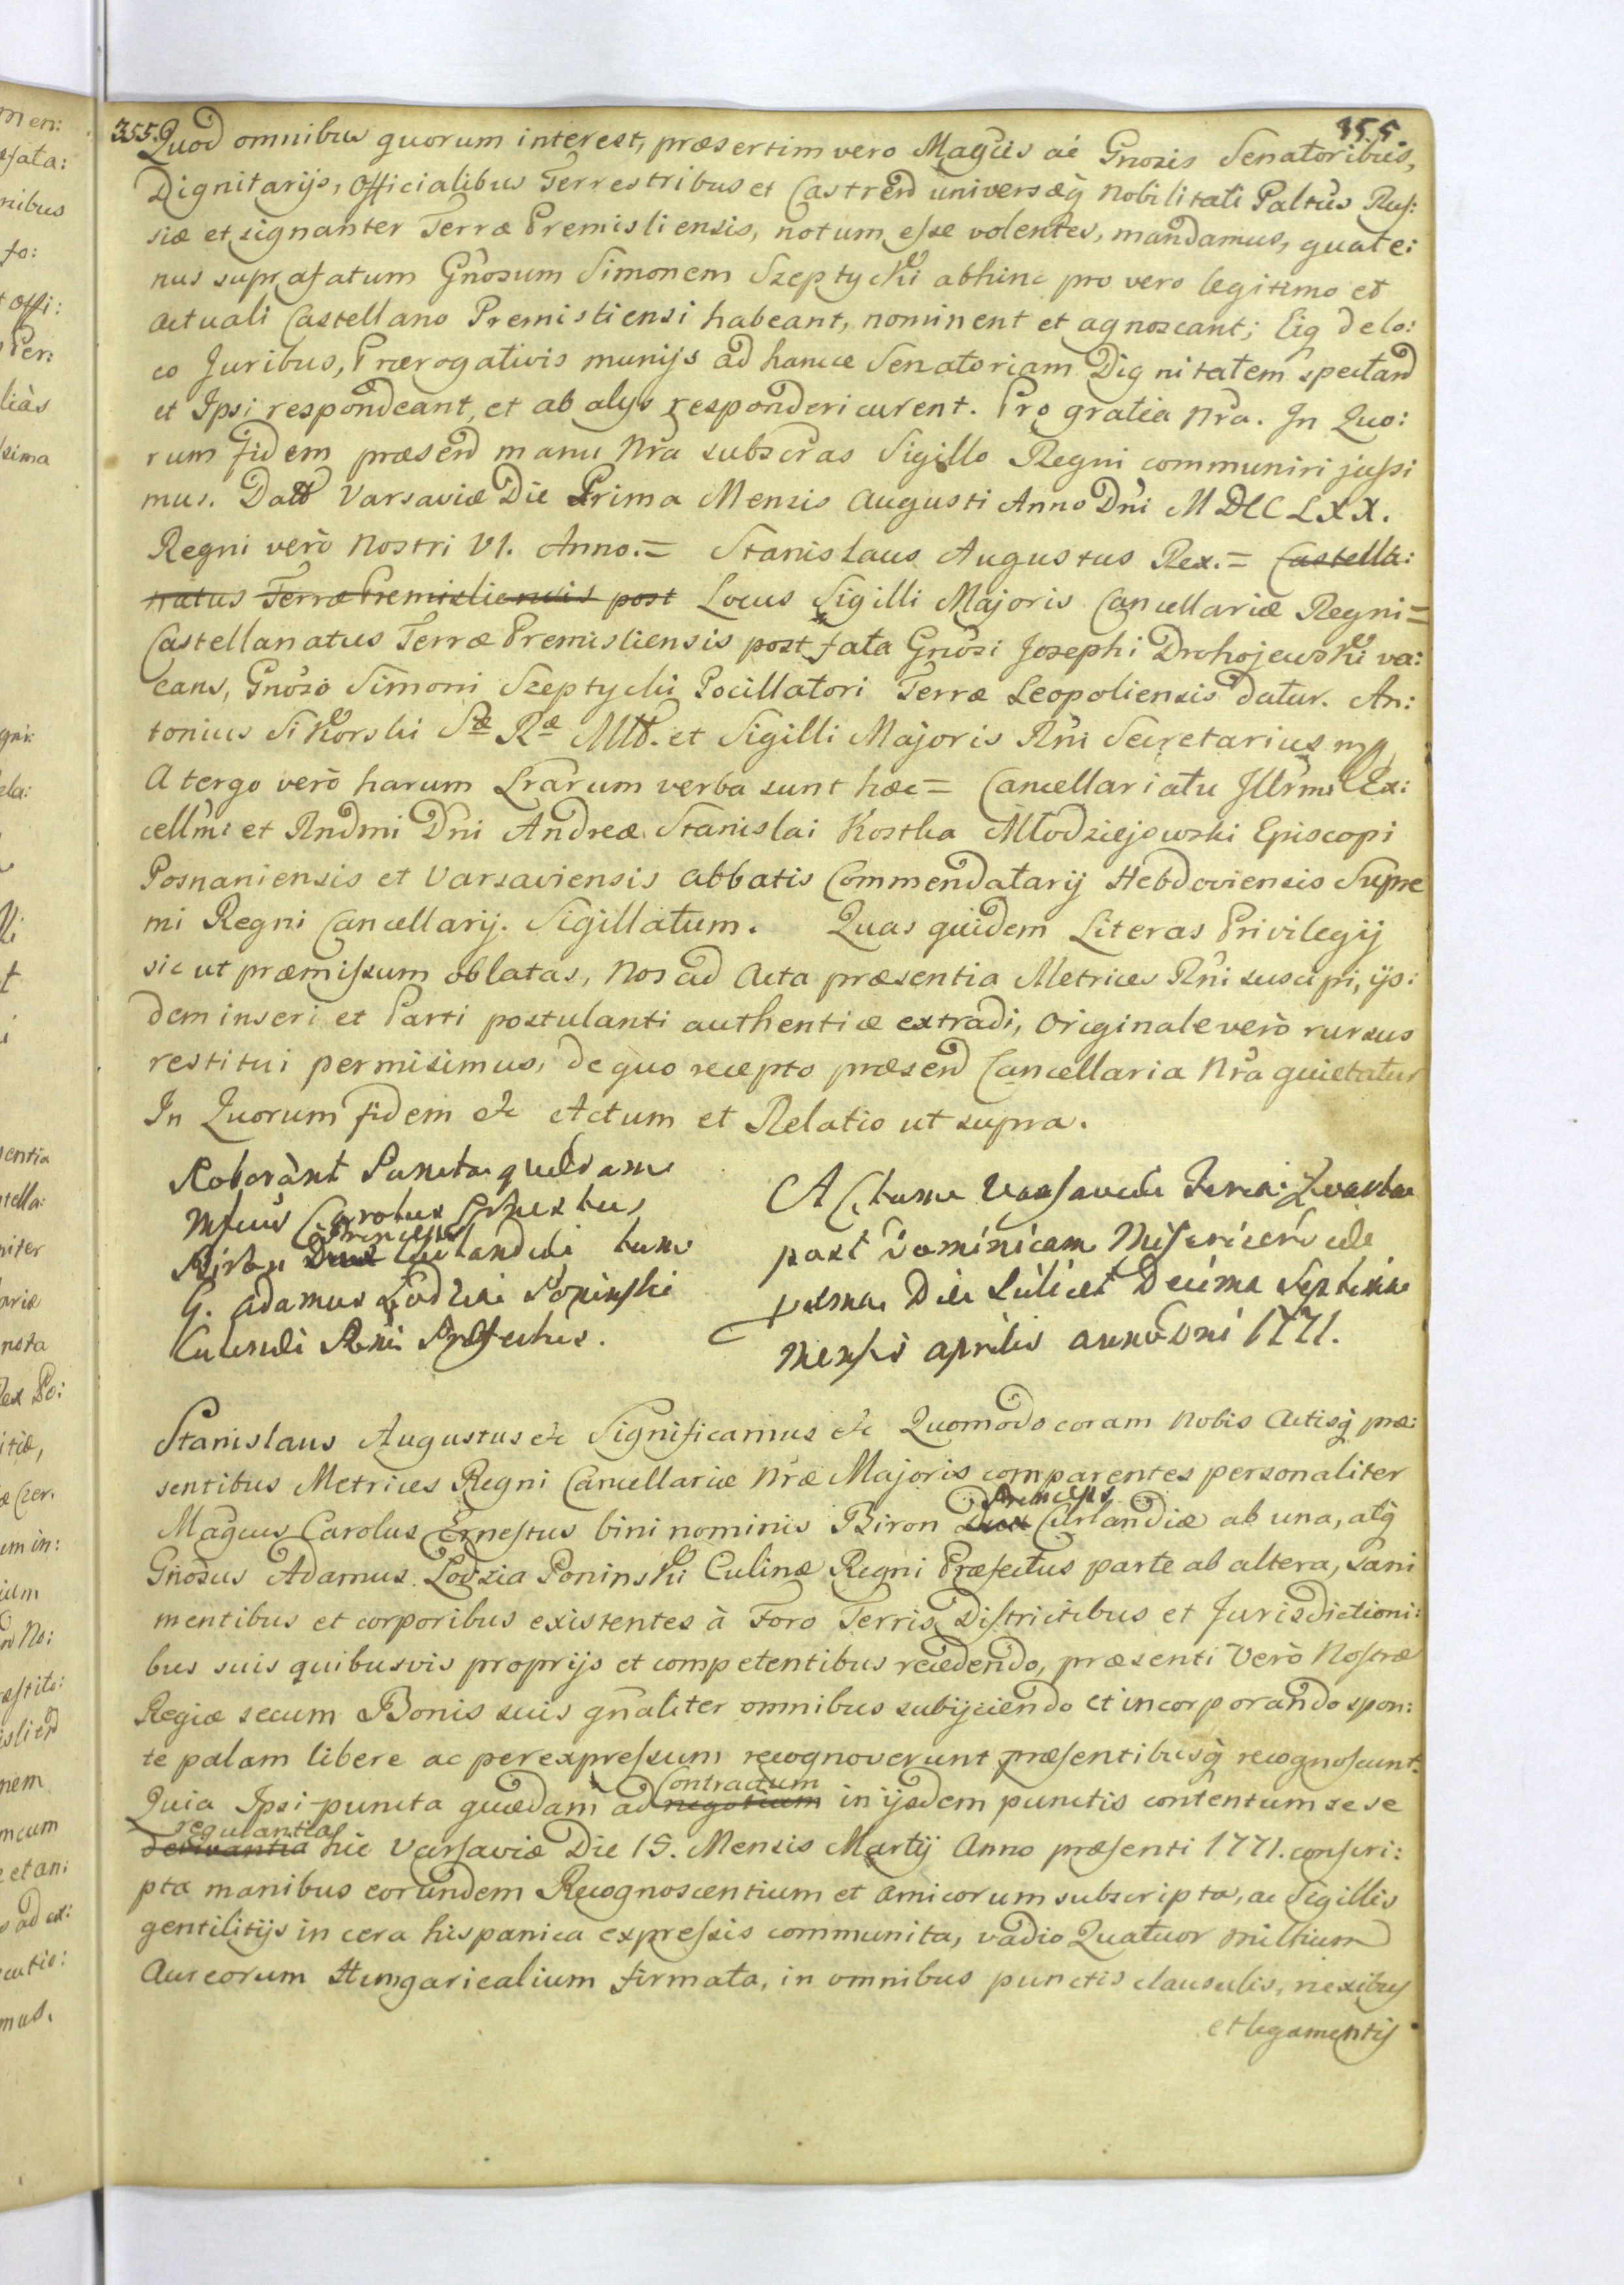 355. 355.
Quod omnibus quorum interest, præsertim vero Magcis ac Gnosis Senatoribus,
Dignitarijs, Officialibus Terrestribus et Castren universæq̃ Nobilitati Paltus Rus:
siæ et signanter Terræ Premisliensis, notum esse volentes, mandamus, quate:
nus supra fatum Gnosum Simonem Szeptycki abhinc pro vero legitimo et
actuali Castellano Premisliensi habeant, nominent et agnoscant; Eiq de lo:
co Juribus, Prærogativis munijs ad hancce Senatoriam Dignitatem spectand
et Ipsi respondeant, et ab alys responderi curent. Pro gratia Nra. In Quo:
rum fidem præsend manu Nra subscras Sigillo Regni communiri jussi
mus. Datt Varsaviæ Die Prima Mensis Augusti Anno Dni MDCCLXX.
Regni verò Nostri VI. Anno.= Stanislaus Augustus Rex.= Castella:
natus Terræ Premisliensis post Locus Sigilli Majoris Cancellariæ Regni=
Castellanatus Terræ Premisliensis post fata Gnosi Josephi Drohojewski va:
cans, Gnoso Simoni Szeptycki Pocillatori Terræ Leopoliensis datur. An:
tonius Sikorski Sæ Ræ Mtt. et Sigilli Majoris Rni Secretarius mp
A tergo verò harum Lrarum verba sunt hæc= Cancellariatu Illrmi Ex:
cellmi et Rndmi Dni Andreæ Stanislai Kostka Młodziejowski Episcopi
Posnaniensis et Varsaviensis Abbatis Commendatarij Hebdoviensis Supre
mi Regni Cancellarij. Sigillatum. Quas quidem Literas Privilegij
sic ut præmissum oblatas, Nos ad Acta præsentia Metrices Rni suscipi, ijs:
dem inseri et Parti postulanti authenticæ extradi, Originale verò rursus
restitui permisimus, de quo recepto præsend Cancellaria Nra quietatur
In Quorum fidem &c Actum et Relatio ut supra.
Roborant Puncta quædam
Mfcus Carolus Ernestus
Princeps
Biron Dux Curlandiæ tum
G. Adamus Lodzia Poninski
Culinæ Rni Præfectus.
Actum Varsaviæ Feria Quarta
post Dominicam Misericordiæ
proxima Die Scilicet Decima Septima
Mensis Aprilis anno Dni 1771.
Stanislaus Augustus &c Significamus &c Quomodo coram Nobis Actisq̃ præ:
sentibus Metrices Regni Cancellariæ Nræ Majoris comparentes personaliter
Princeps
Magcus Carolus Ernestus bini nominis Biron Dux Curlandiæ ab una, atq̃
Gnosus Adamus Lodzia Poninski Culinæ Regni Præfectus parte ab altera, sani
mentibus et corporibus existentes à Foro Terris Districtibus et Jurisdictioni:
bus suis quibusvis proprijs et competentibus recedendo, præsenti Verò Nostræ
Regiæ secum Bonis suis gnaliter omnibus subijciendo et incorporando spon:
te palam libere ac per expressum recognoverunt præsentibusq̃ recognoscunt.
Contractum
Quia Ipsi puncta quædam ad negotium in ijsdem punctis contentum se se
regulantia
derivantia hic Varsaviæ Die 15. Mensis Martij Anno præsenti 1771. conscri:
pta manibus eorundem Recognoscentium et amicorum subscripta, ac Sigillis
gentilitijs in cera hispanica expressis communita, vadio Quatuor millium
Aureorum Hungaricalium firmata, in omnibus punctis clausulis, nexibus
et legamentis